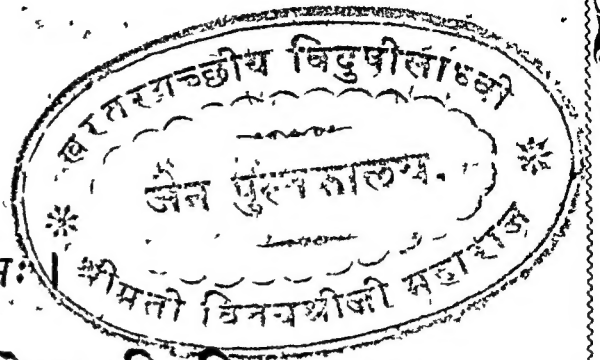 खरतरगच्छीय विदुषीसाध्वी
जैन पुस्तकालय.
श्रीमती विनयश्रीजी महाराज